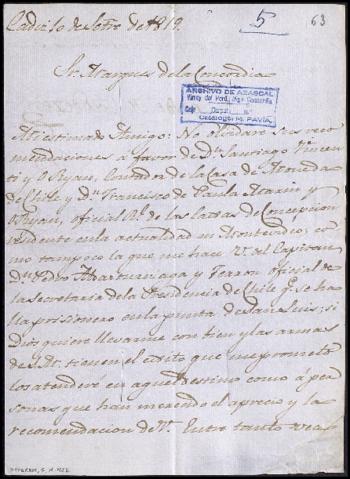 Cadiz 10 de Setre de 1819.
5
63
Sr. Marques de la Concordia
ARCHIVO DE ABASCAL
Virrey del Perú, Mqs. Concordia
Caja
Catálogo: M. PAVIA.
Mi estimado Amigo: No olvidaré sus reco
mendaciones á favor de Dn. Santiago
y O Ryan, Contador de la Casa de Moneda
de Chile y Dn. Francisco de Paula
O Ryan, oficial Rl. de las Caxas de Concepcion
residente en la actualidad en Montevideo, co
mo tampoco la que me hace V. al Capitan
Dn. Pedro y oficial de
la Secretaria de la Presidencia de Chile q. se ha
lla prisionero en la punta de San Luis; si
Dios quiere llevarme con bien y las armas
de S.M. tienen el exito que me prometo
los atenderé en aquel destino como á per
sonas que han merecido el aprecio y la
recomendacion de V. Entre tanto vea